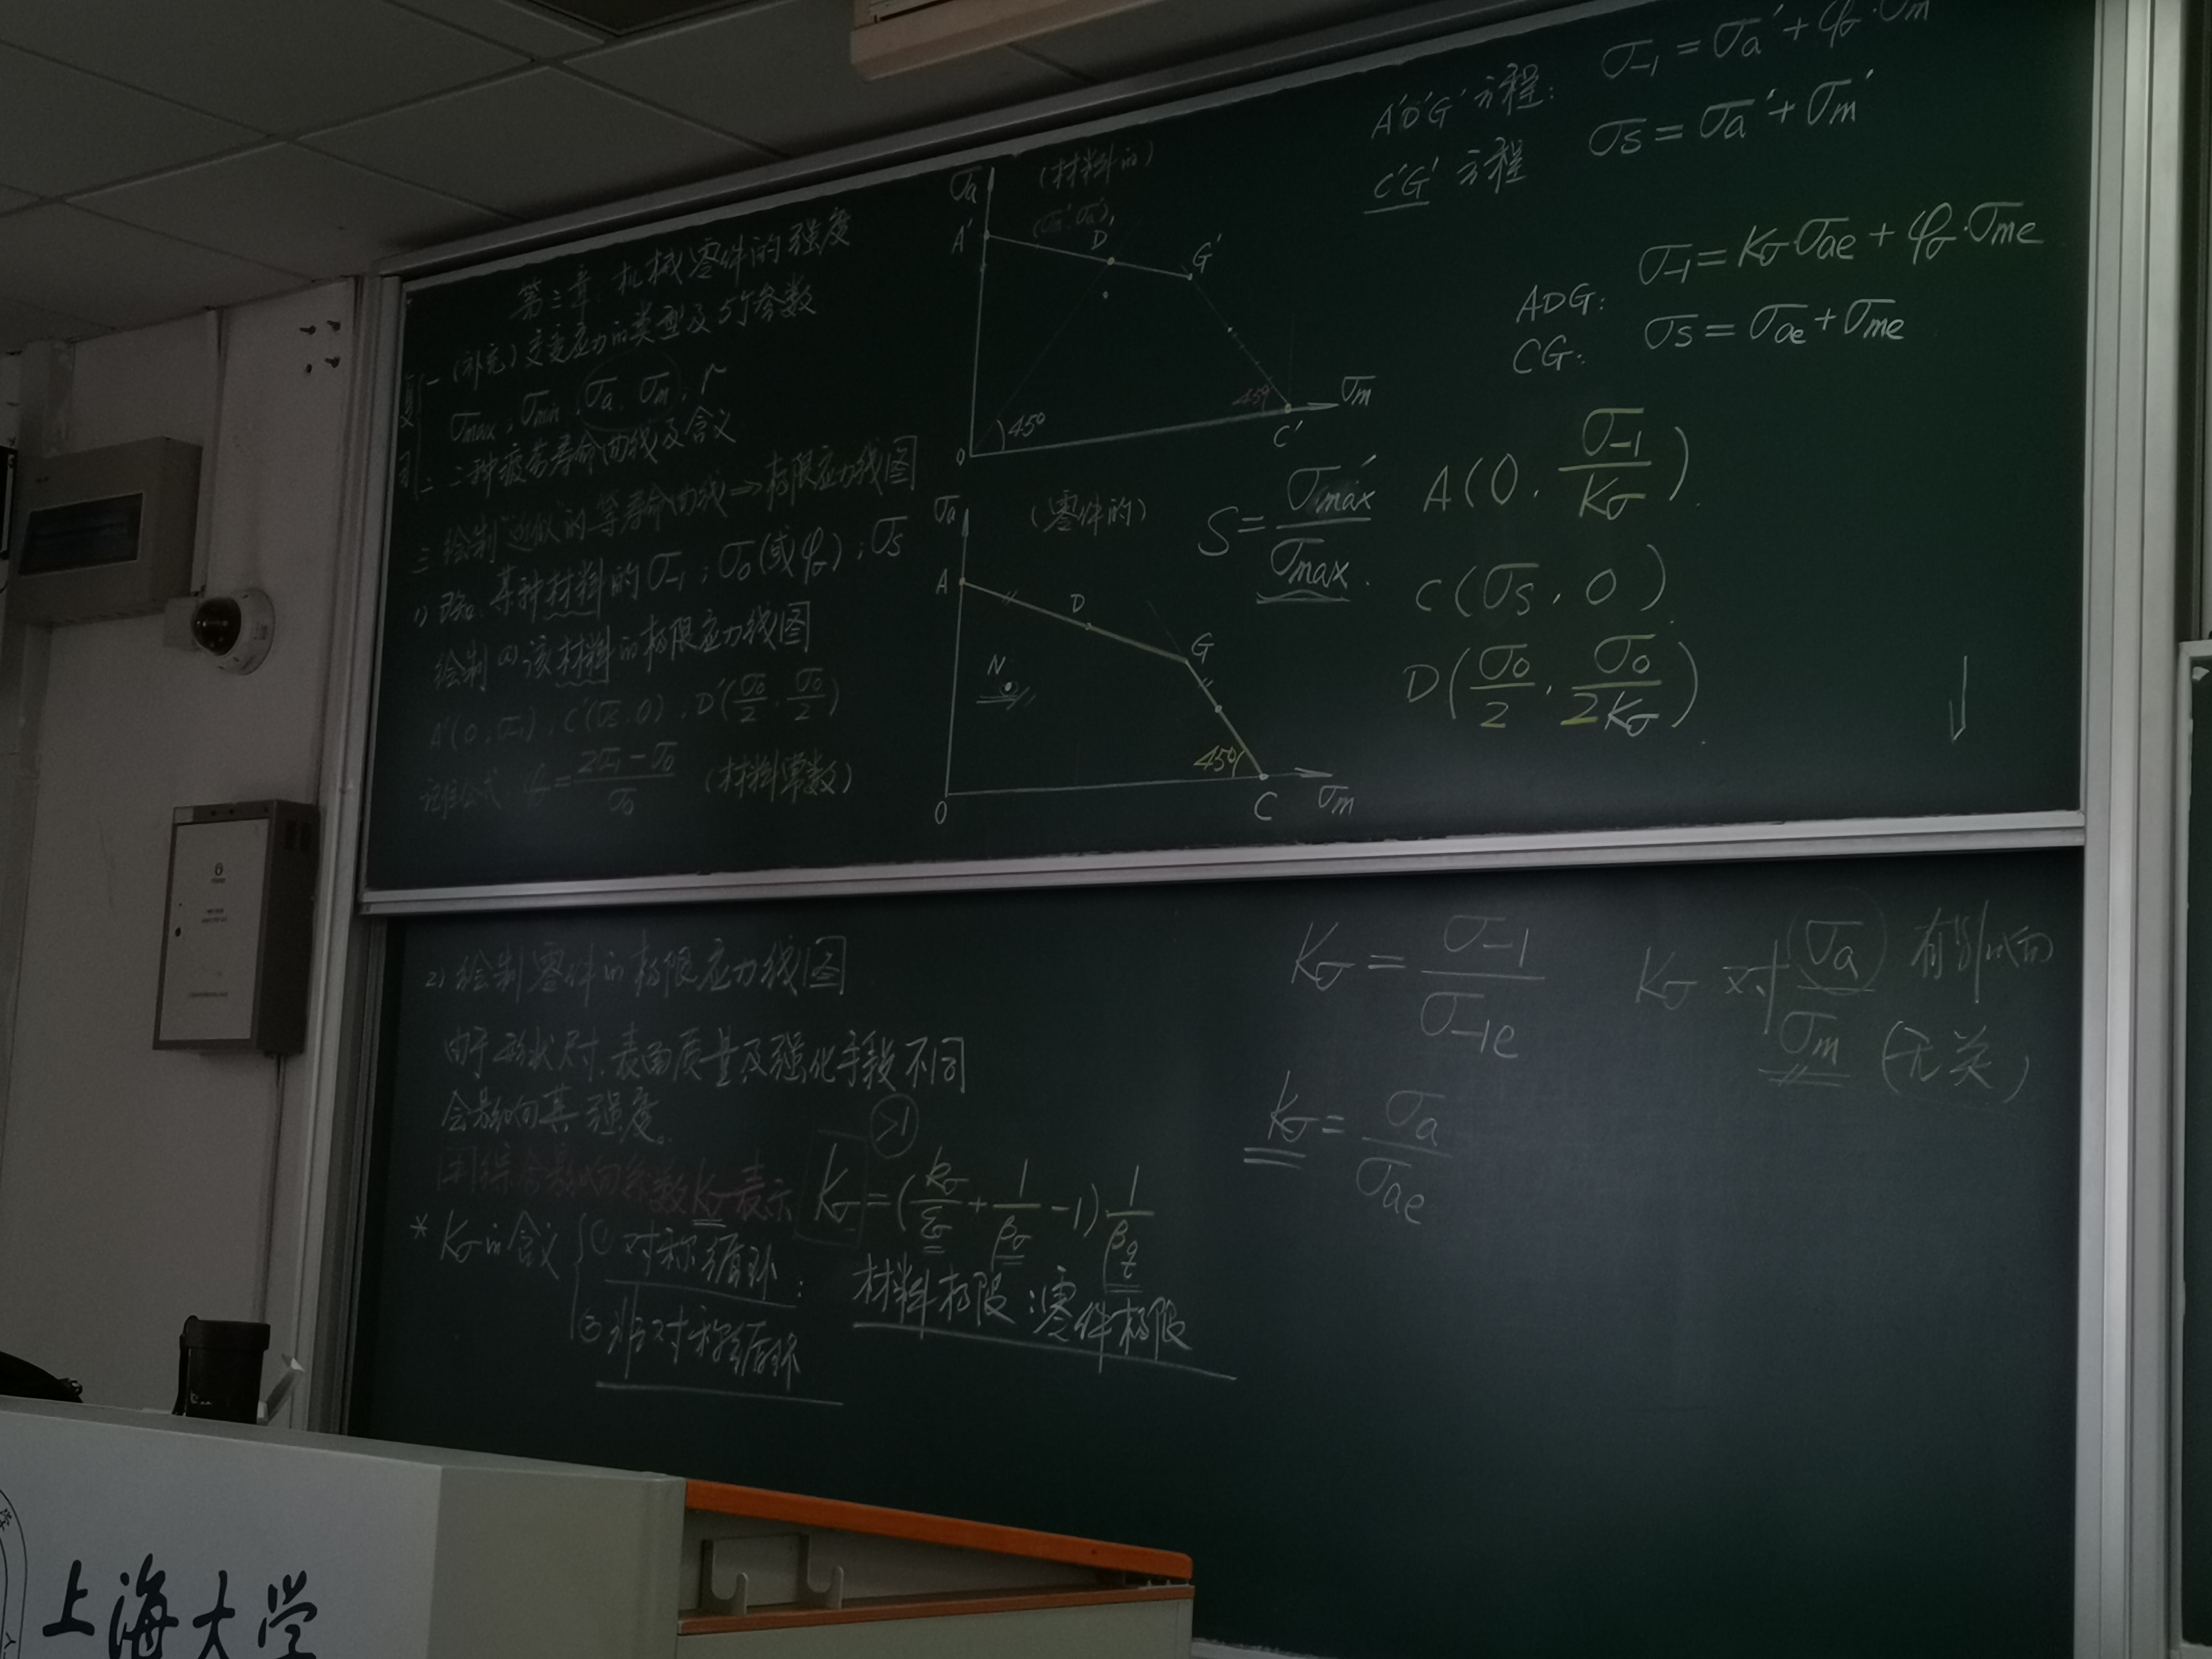 第三章 机械零件的强度
复习
一 (补充) 交变应力的类型及5个参数
σmax, σmin, σa, σm, r
二 二种疲劳寿命曲线及含义
三 绘制"近似"的等寿命曲线⇒极限应力线图
1) 已知: 某种材料的σ-1; σ0(或φσ); σs
绘制(a)该材料的极限应力线图
A'(0, σ-1), C'(σs, 0), D'(σ0/2, σ0/2)
记住公式: φσ = (2σ-1 - σ0)/σ0 (材料常数)
σa (材料的)
(σm', σa')
A' D' G'
45° 45° σm
O C'
σa (零件的)
A D G
N
45°
O C σm
S = σ'max/σmax
A'D'G'方程: σ-1 = σa' + φσ·σm'
C'G'方程 σs = σa' + σm'
ADG: σ-1 = Kσ·σae + φσ·σme
CG: σs = σae + σme
A(0, σ-1/Kσ)
C(σs, 0)
D(σ0/2, σ0/2Kσ)
2) 绘制零件的极限应力线图
由于形状尺寸, 表面质量及强化手段不同
会影响其强度。
用综合影响系数Kσ表示 Kσ = (kσ/εσ + 1/βσ - 1) 1/βq
>1
* Kσ的含义 ① 对称循环: 材料极限:零件极限
② 非对称循环
Kσ = σ-1/σ-1e
Kσ = σa/σae
Kσ 对 σa 有影响
σm (无关)
上海大学